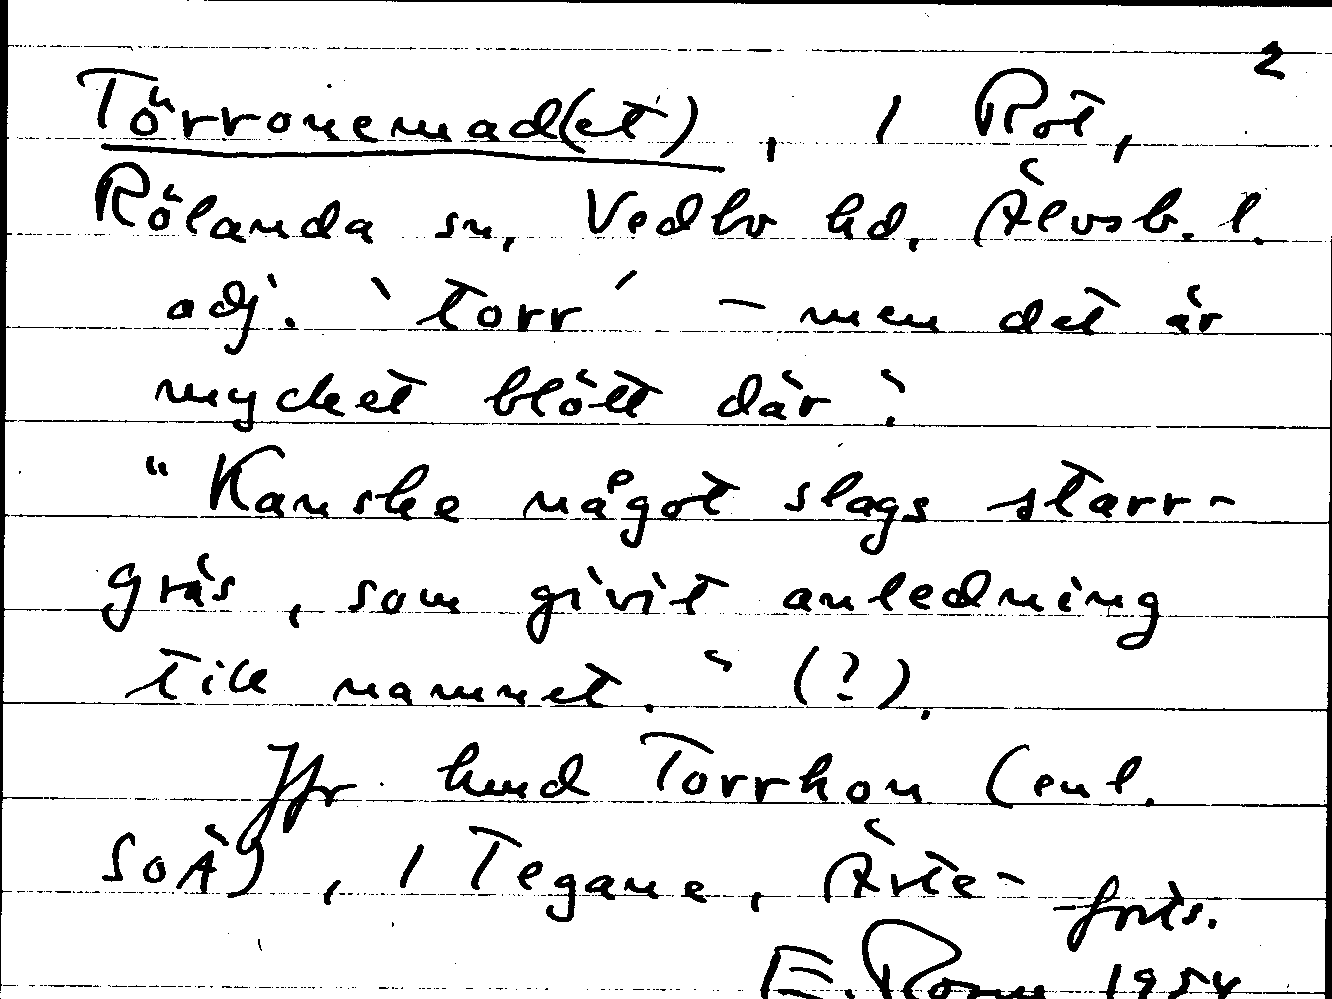 2
Törronemad(et), 1 Röt,
Rölanda sn, Vedbo hd, Älvsb. l.
adj. 'torr' – men det är
mycket blött där!
"Kanske något slags starr-
gräs, som givit anledning
till namnet." (?).
Jfr hmd Torrkon (enl.
SOÄ), 1 Tegane, Ärte-
forts.
E. 1954